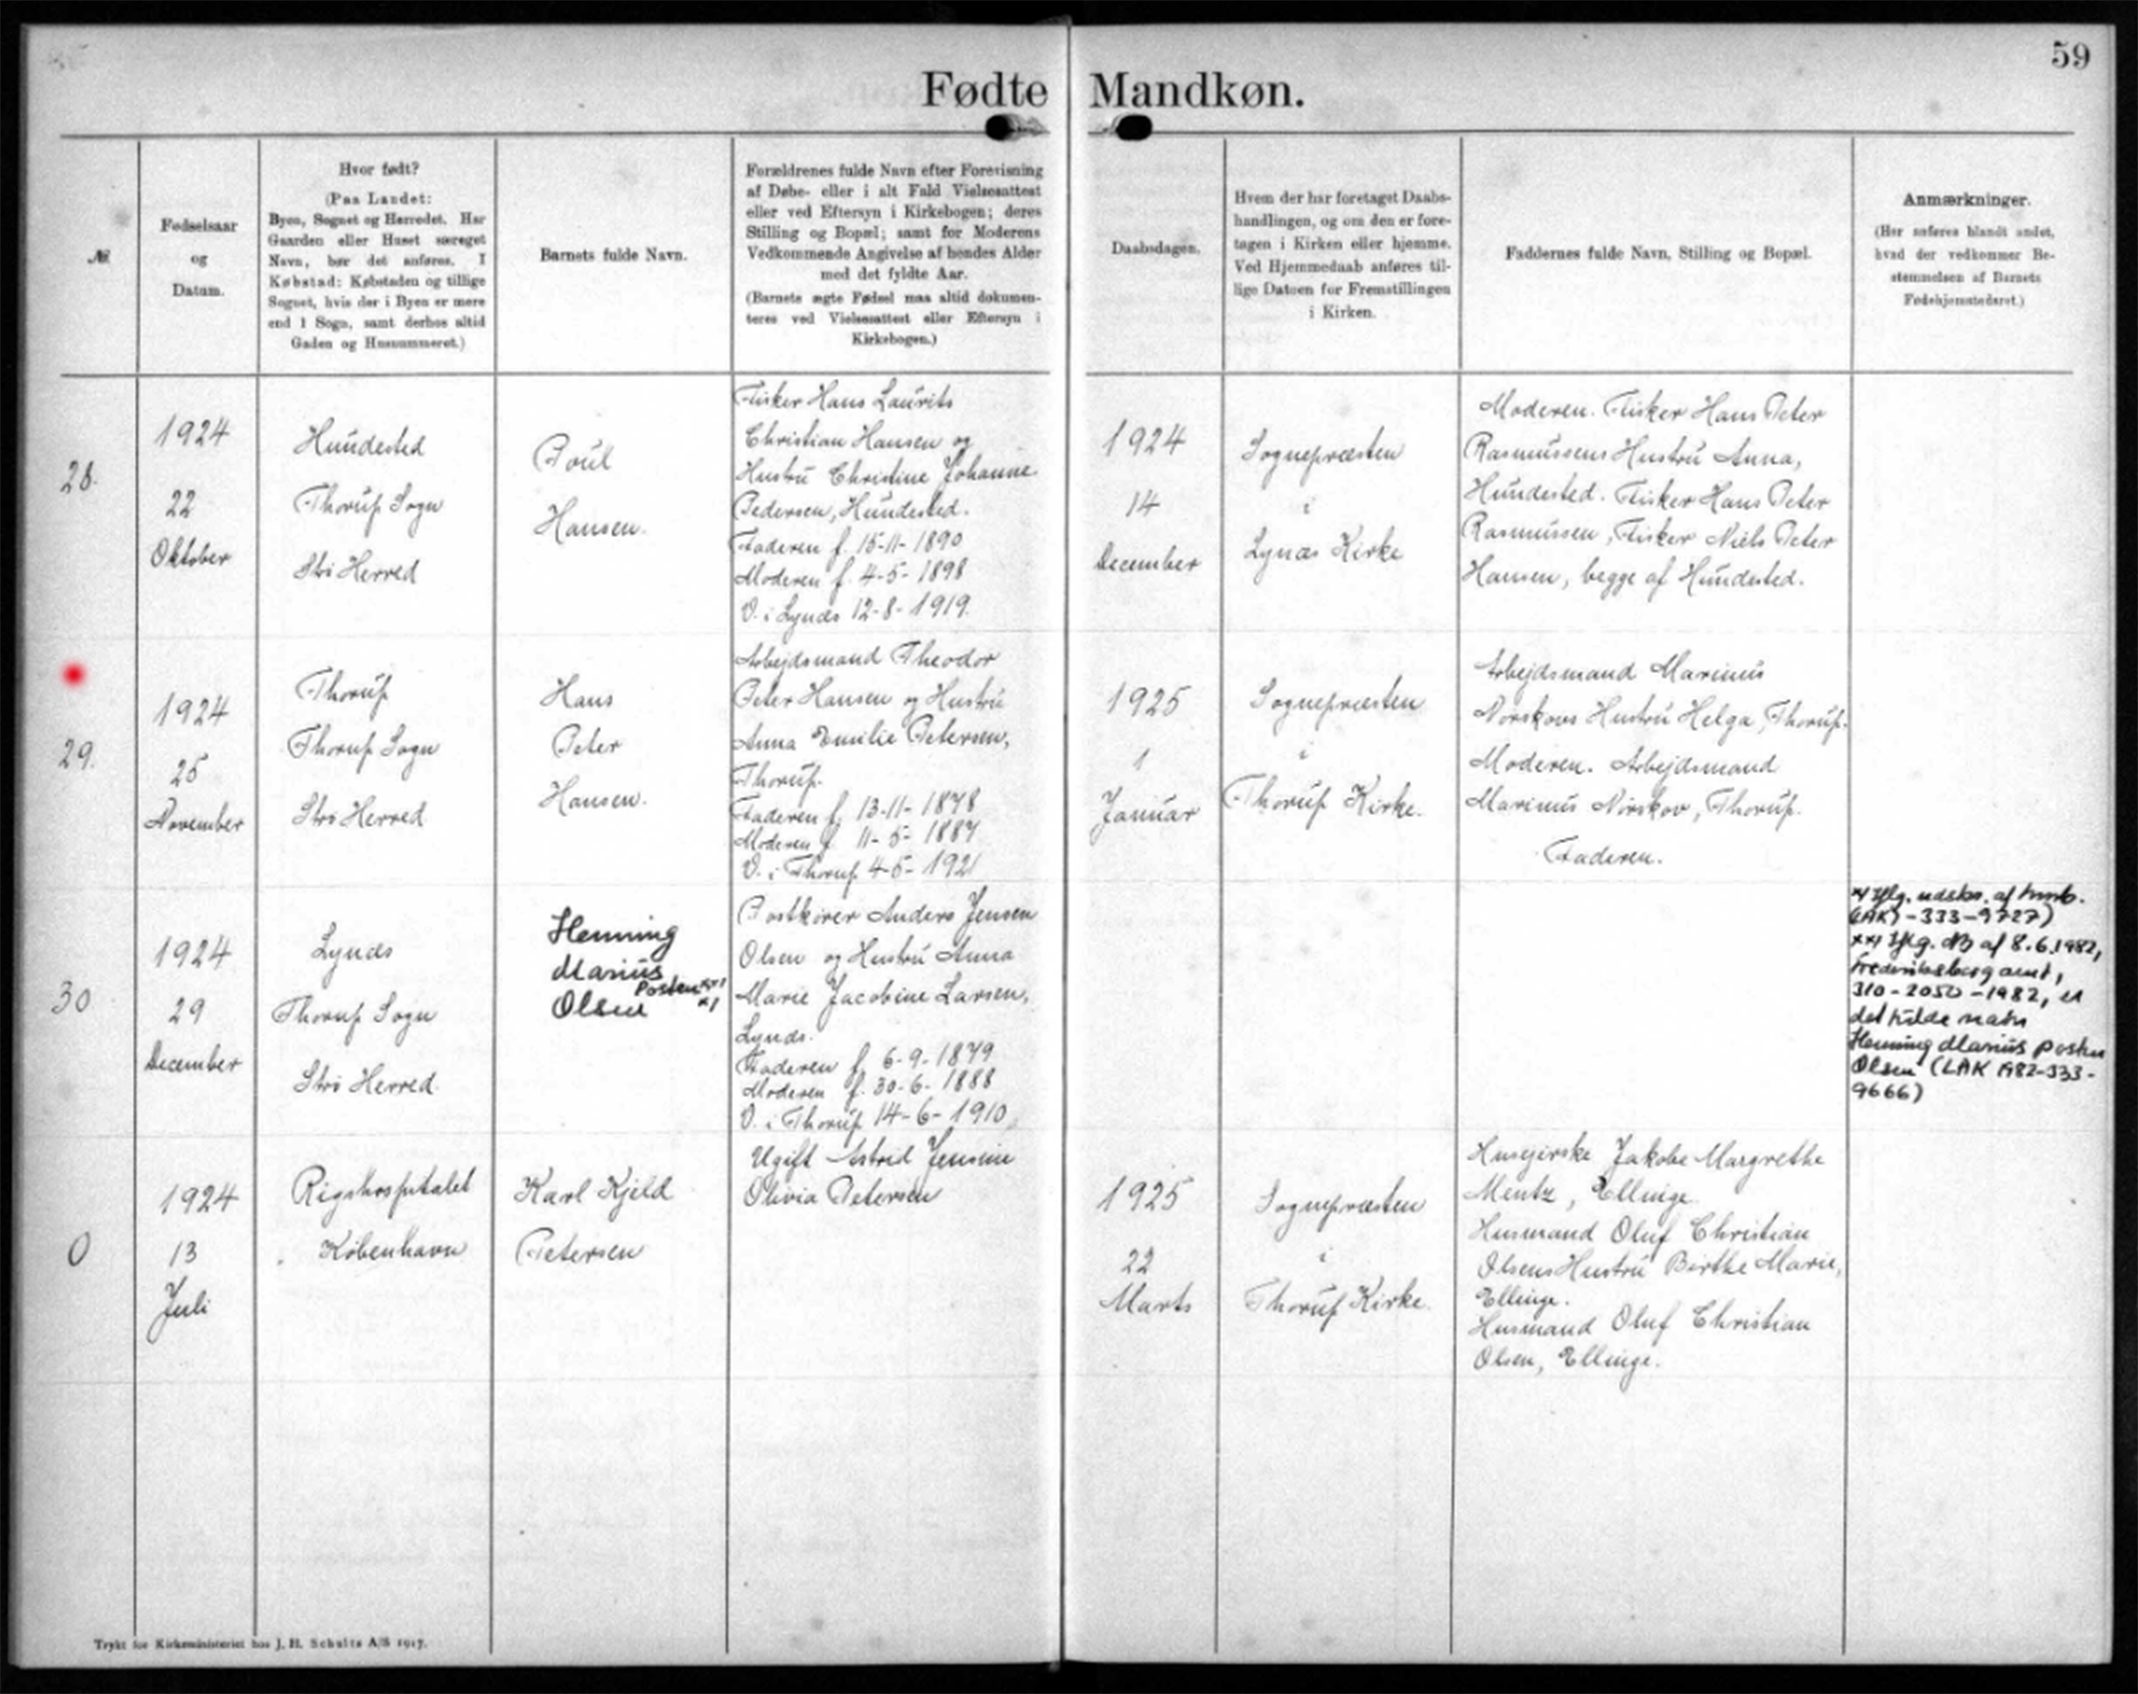 59
Fødte Mandkøn.
№
Fødselsaar
og
Datum.
Hvor født?
(Paa Landet:
Byen, Sognet og Herredet. Har
Gaarden eller Huset særeget
Navn, bør det anføres. I
Købstad: Købstaden og tillige
Sognet, hvis der i Byen er mere
end 1 Sogn, samt derhos altid
Gaden og Husnummeret.)
Barnets fulde Navn.
Forældrenes fulde Navn efter Forevisning
af Døbe- eller i alt Fald Vielsesattest
eller ved Eftersyn i Kirkebogen; deres
Stilling og Bopæl; samt for Moderens
Vedkommende Angivelse af hendes Alder
med det fyldte Aar.
(Barnets ægte Fødsel maa altid dokumen-
teres ved Vielsesattest eller Eftersyn i
Kirkebogen.)
Daabsdagen.
Hvem der har foretaget Daabs-
handlingen, og om den er fore-
tagen i Kirken eller hjemme.
Ved Hjemmedaab anføres til-
lige Datoen for Fremstillingen
i Kirken.
Faddernes fulde Navn, Stilling og Bopæl.
Anmærkninger.
(Her anføres blandt andet,
hvad der vedkommer Be-
stemmelsen af Barnets
Fødehjemstedsret.)
28.
1924
22
Oktober
Hundested
Thorup Sogn
Strø Herred
Poul
Hansen.
Fisker Hans Laurits
Christian Hansen og
Hustru Christine Johanne
Pedersen, Hundested.
Faderen f. 15-11-1890
Moderen f. 4-5-1898
V. i Lynæs 12-8-1919.
1924
14
December
Sognepræsten
i
Lynæs Kirke
Moderen. Fisker Hans Peter
Rasmussens Hustru Anna,
Hundested. Fisker Hans Peter
Rasmussen, Fisker Niels Peter
Hansen, begge af Hundested.
29.
1924
25
November
Thorup
Thorup Sogn
Strø Herred
Hans
Peter
Hansen.
Arbejdsmand Theodor
Peter Hansen og Hustru
Anna Emilie Petersen,
Thorup.
Faderen f. 13-11-1878
Moderen f. 11-5-1887
V. i Thorup 4-5-1921
1925
1
Januar
Sognepræsten
i
Thorup Kirke.
Arbejdsmand Marinus
Norskovs Hustru Helga, Thorup.
Moderen. Arbejdsmand
Marinus Norskov, Thorup.
Faderen.
30
1924
29
December
Lynæs
Thorup Sogn
Strø Herred.
Henning
Marius
Posten xx)
Olsen x)
Postkører Anders Jensen
Olsen og Hustru Anna
Marie Jacobine Larsen,
Lynæs.
Faderen f. 6-9-1879
Moderen f. 30-6-1888
V. i Thorup 14-6-1910.
x) Iflg. udskr. af
(LAK) -333-9727)
xx) Iflg. NB af 8.6.1982,
Frederiksborg amt,
310-2050-1982, er
det fulde navn
Henning Marius Posten
Olsen (LAK 1982-333-
9666)
0
1924
13
Juli
Rigshospitalet
København
Karl Kjeld
Petersen
Ugift Astrid Jensine
Olivia Petersen
1925
22
Marts
Sognepræsten
i
Thorup Kirke.
Husejerske Jakobe Margrethe
Mentz, Ellinge.
Husmand Oluf Christian
Olsens Hustru Birthe Marie,
Ellinge.
Husmand Oluf Christian
Olsen, Ellinge.
Trykt for Kirkeministeriet hos J. H. Schultz A/S 1917.